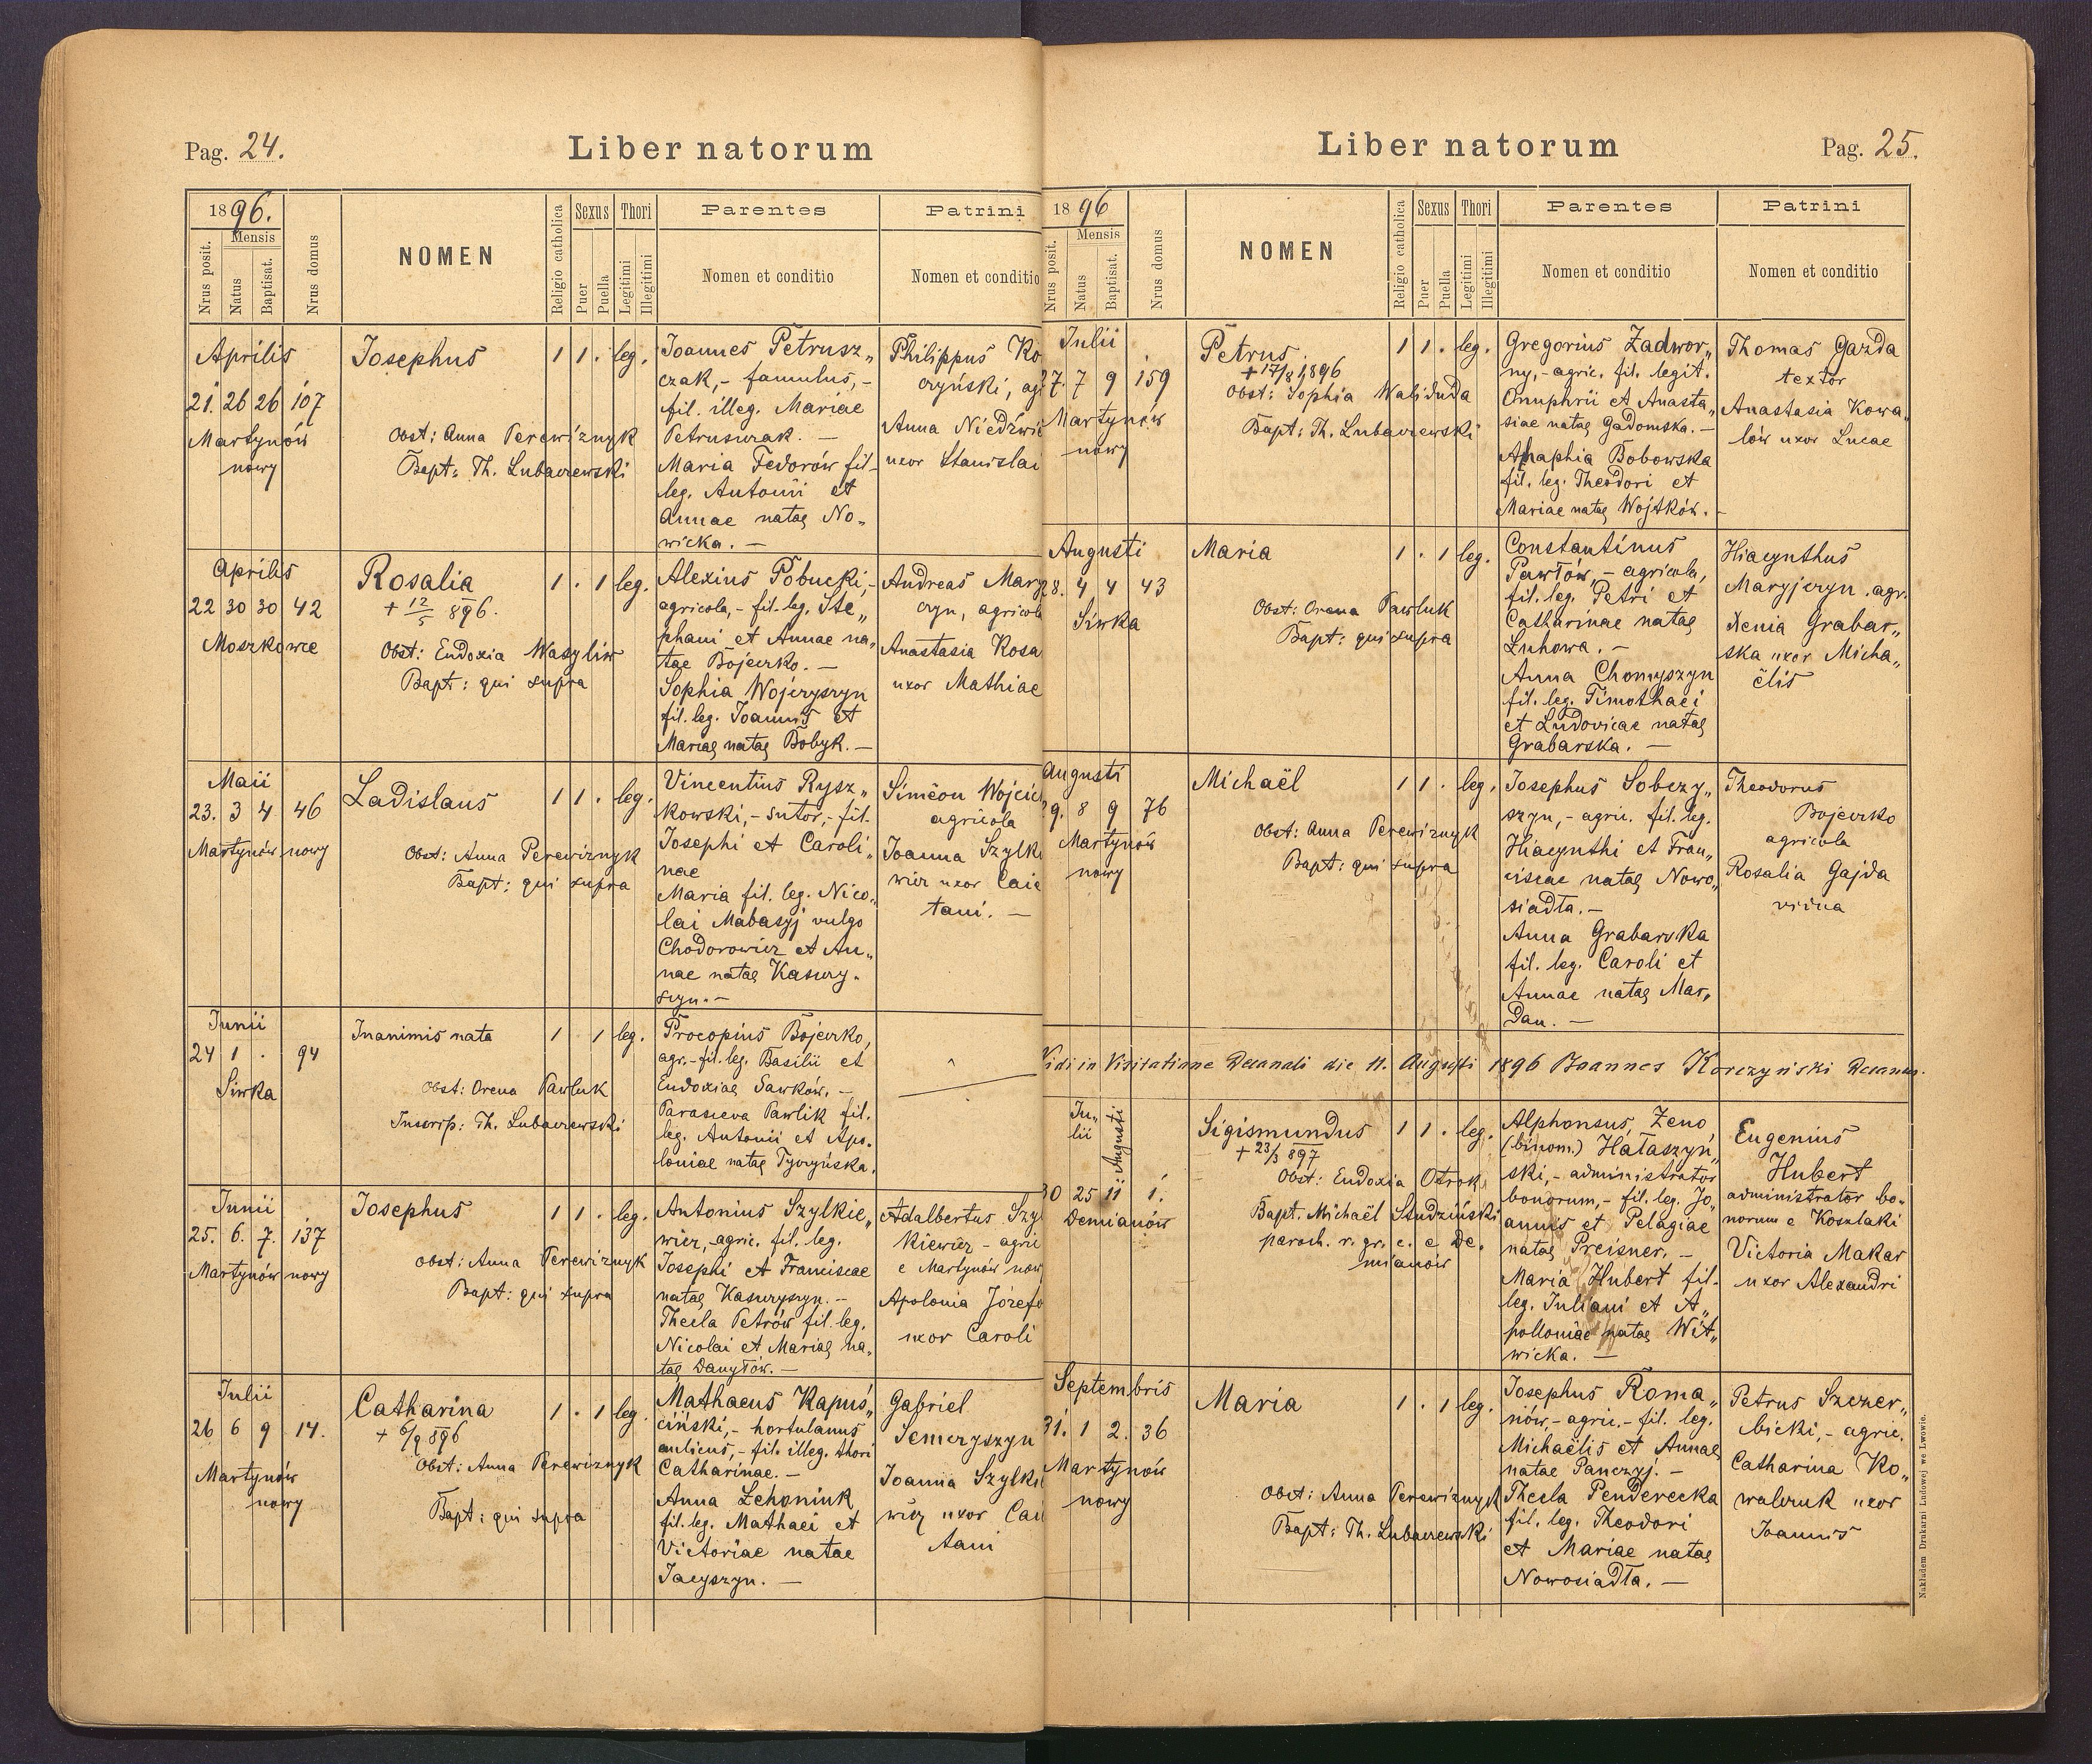 Pag. 24.
Liber natorum
1896.
Nrus posit.
Mensis
Natus
Baptisat.
Nrus domus
NOMEN
Religio catholica
Sexus
Puer
Puella
Thori
Legitimi
Illegitimi
Parentes
Nomen et conditio
Patrini
Nomen et conditio
Aprilis
21. 26 26 107
Martynów
nowy
Josephus
Obst: Anna Perewiznyk
Bapt: Th. Lubaczewski
1 1 . leg.
Joannes Petrusz„
czak,- famulus,-
fil. illeg. Mariae
Petruszczak. —
Maria Fedorów fil-
leg. Antonii et
Annae natae No„
wicka. —
Philippus Ko
czyński, ag
Anna Niedźwie
uxor Stanislai
Aprilis
22 30 30 42
Moszkowce
Rosalia
+ 12/5 896.
Obst: Eudoxia Wasyliw
Bapt: qui supra
1 . 1 leg.
Alexius Pobucki,-
agricola,- fil. leg. Ste„
phani et Annae na„
tae Bojeczko. —
Sophia Wojczyszyn
fil. leg. Joannis et
Mariae natae Bobyk. —
Andreas Mary
czyn, agricola
Anastasia Kosa
uxor Mathiae
Maii
23. 3 4 46
Martynów nowy
Ladislaus
Obst: Anna Perewiznyk
Bapt: qui supra
1 1 . leg.
Vincentius Rysz„
kowski,- sutor,- fil.
Josephi et Caroli„
nae
Maria fil. leg. Nico„
lai Mabasyj vulgo
Chodorowicz et An„
nae natae Kasczy.
szyn. —
Simeon Wojcie
agricola
Joanna Szylk
wicz uxor Caie
tani. —
Junii
24 1 . 94
Siwka
Inanimis nata
Obst: Orena Pawluk
Inscrip: Th. Lubaczewski
1 1 leg.
Procopius Bojeczko,
agr.- fil. leg. Basilii et
Eudoxiae Sawków. —
Parasceva Pawlik fil.
leg. Antonii et Apo.
loniae natae Tyczyńska.
Junii
25. 6. 7. 137
Martynów nowy
Josephus
Obst: Anna Perewiznyk
Bapt: qui supra
1 1 . leg.
Antonius Szylkie„
wicz,- agric. fil. leg.
Josephi et Franciscae
natae Kasczyszyn. —
Thecla Petrów fil. leg.
Nicolai et Mariae na„
tae Danyłów. —
Adalbertus Szy
kiewicz - agri
e Martynów now
Apolonia Józefo
uxor Caroli
Julii
26 6 9 14.
Martynów
nowy
Catharina
+ 6/9 896
Obst: Anna Perewiznyk
Bapt: qui supra
1 . 1 leg.
Mathaeus Kapuś„
ciński,- hortulanus
aulicus,- fil. illeg. thori
Catharinae. —
Anna Zchoniuk
fil. leg. Mathaei et
Victoriae natae
Jacyszyn. —
Gabriel
Semczyszyn
Joanna Szylki
wicz uxor Cai
tani
Liber natorum
Pag. 25.
1896
Nrus posit.
Mensis
Natus
Baptisat.
Nrus domus
NOMEN
Religio catholica
Sexus
Puer
Puella
Thori
Legitimi
Illegitimi
Parentes
Nomen et conditio
Patrini
Nomen et conditio
Julii
27. 7 9 159
Martynów
nowy
Petrus
+ 17/8 1896
Obst: Sophia Waliduda
Bapt: Th. Lubaczewski
1 1 . leg.
Gregorius Zadwor„
ny,- agric. fil. legit.
Onuphrii et Anasta„
siae natae Gadomska. —
Ahaphia Bobowska
fil. leg. Theodori et
Mariae natae Wojtków. —
Thomas Gazda
textor
Anastasia Kowa„
lów uxor Lucae
Augusti
28. 4 4 43
Siwka
Maria
Obst: Orena Pawluk
Bapt: qui supra
1 . 1 leg.
Constantinus
Pawłów,- agricola,
fil. leg. Petri et
Catharinae natae
Luhowa. —
Anna Chomyszyn
fil. leg. Timothaei
et Ludovicae natae
Grabarska. —
Hiacynthus
Maryjczyn. agr.
Xenia Grabar„
ska uxor Micha„
ëlis
Augusti
9. 8 9 76
Martynów
nowy
Michaël
Obst: Anna Perewiznyk
Bapt: qui supra
1 1 . leg.
Josephus Sobczy„
szyn,- agric. fil. leg.
Hiacynthi et Fran„
ciscae natae Nowo„
siadła. —
Anna Grabarska
fil. leg. Caroli et
Annae natae Mar„
dan. —
Theodorus
Bojeczko
agricola
Rosalia Gajda
vidua
Vidi in Visitatione Decanali die 11. Augusti 1896 Joannes Korczyński Decanus.
Ju„
lii
Augusti
30 25 11 1.
Demianów
Sigismundus
+ 23/3 897
Obst: Eudoxia Otrok
Bapt. Michaël Studziński
paroch. r. gr. c. e De.
mianów
1 1 . leg.
Alphonsus, Zeno
(binom.) Hałaszyń„
ski,- administrator
bonorum,- fil. leg. Jo„
annis et Pelagiae
natae Preisner. —
Maria Hubert fil.
leg. Juliani et A„
polloniae natae Wit„
wicka. —
Eugenius
Hubert
administrator bo.
norum e Koszlaki
Victoria Makar
uxor Alexandri
Septembris
31. 1 2. 36
Martynów
nowy
Maria
Obst: Anna Perewiznyk
Bapt: Th. Lubaczewski
1 . 1 leg.
Josephus Roma„
niów,- agric.- fil. leg.
Michaëlis et Annae
natae Panczyj. —
Thecla Penderecka
fil. leg. Theodori
et Mariae natae
Nowosiadła. —
Petrus Szczer„
bicki,- agric.
Catharina Ko„
walczuk uxor
Joannis
Nakładem Drukarni Ludowej we Lwowie.